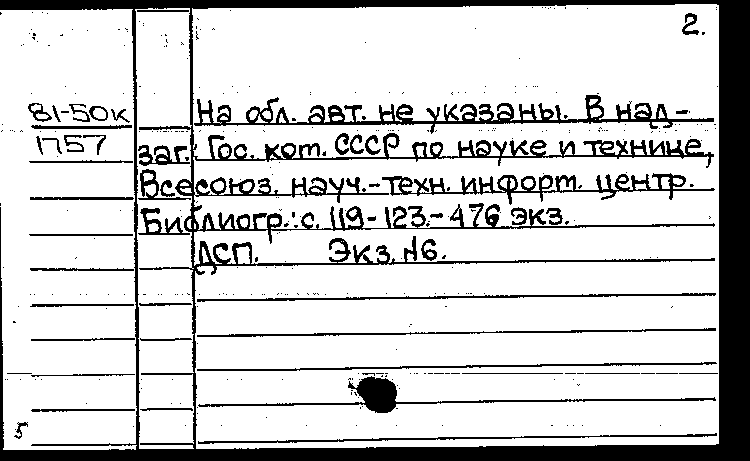 2.
81-50к
1757
На обл. авт. не указаны. В над-
заг.: Гос. ком. СССР по науке и технике,
Всесоюз. науч.-техн. информ. центр.
Библиогр.: с. 119-123. - 476 экз.
ДСП. Экз. №6.
5